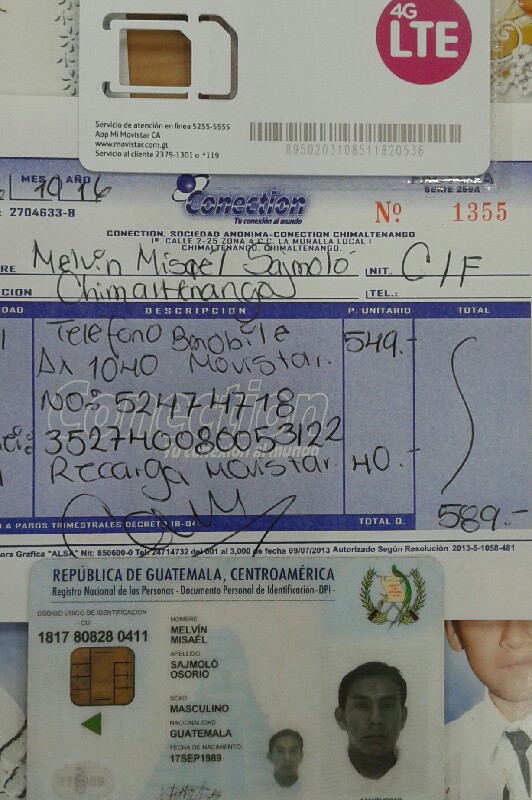 4G
LTE
Servicio de atención en línea 5255-5555
App Mi Movistar CA
www.movistar.com.gt
Servicio al cliente 2379-1301 o *119
8950203108511820536
MES AÑO
10 16
: 2704633-8
Conection
Tu conexión al mundo
SERIE 259A
Nº 1355
CONECTION, SOCIEDAD ANONIMA-CONECTION CHIMALTENANGO
1ª CALLE 2-25 ZONA 4 C.C. LA MURALLA LOCAL I
CHIMALTENANGO, CHIMALTENANGO.
RE Melvin Misael Sajmoló NIT. C/F
CION Chimaltenango TEL.:
DAD DESCRIPCION P. UNITARIO TOTAL
1 Telefono Bmobile 549.-
Ax 1040 Movistar.
No: 52474718
352740086053122
1 Recarga Movistar. 40.-
Conection
Tu conexión al mundo
A PAGOS TRIMESTRALES TOTAL Q. 589.-
ora Grafica "ALSA" Nit: 850600-0 Tel: 24714732 del 001 al 3,000 de fecha 09/07/2013 Autorizado Según Resolución 2013-5-1058-481
REPÚBLICA DE GUATEMALA, CENTROAMÉRICA
Registro Nacional de las Personas - Documento Personal de Identificación -DPI -
CÓDIGO ÚNICO DE IDENTIFICACIÓN
- CUI
1817 80828 0411
NOMBRE
MELVÍN
MISAÉL
APELLIDO
SAJMOLÓ
OSORIO
SEXO
MASCULINO
NACIONALIDAD
GUATEMALA
FECHA DE NACIMIENTO
17SEP1989